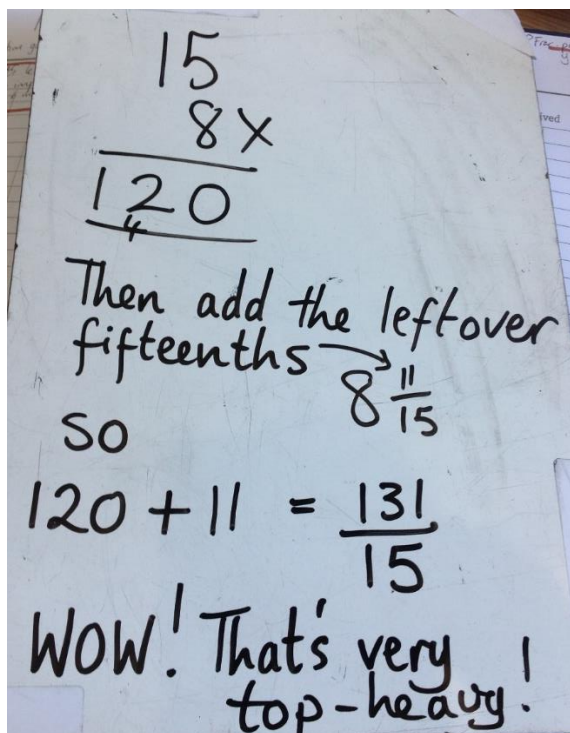 15
8×
120
4
Then add the leftover
fifteenths → 8 11/15
so
120 + 11 = 131/15
WOW! That's very
top-heavy!